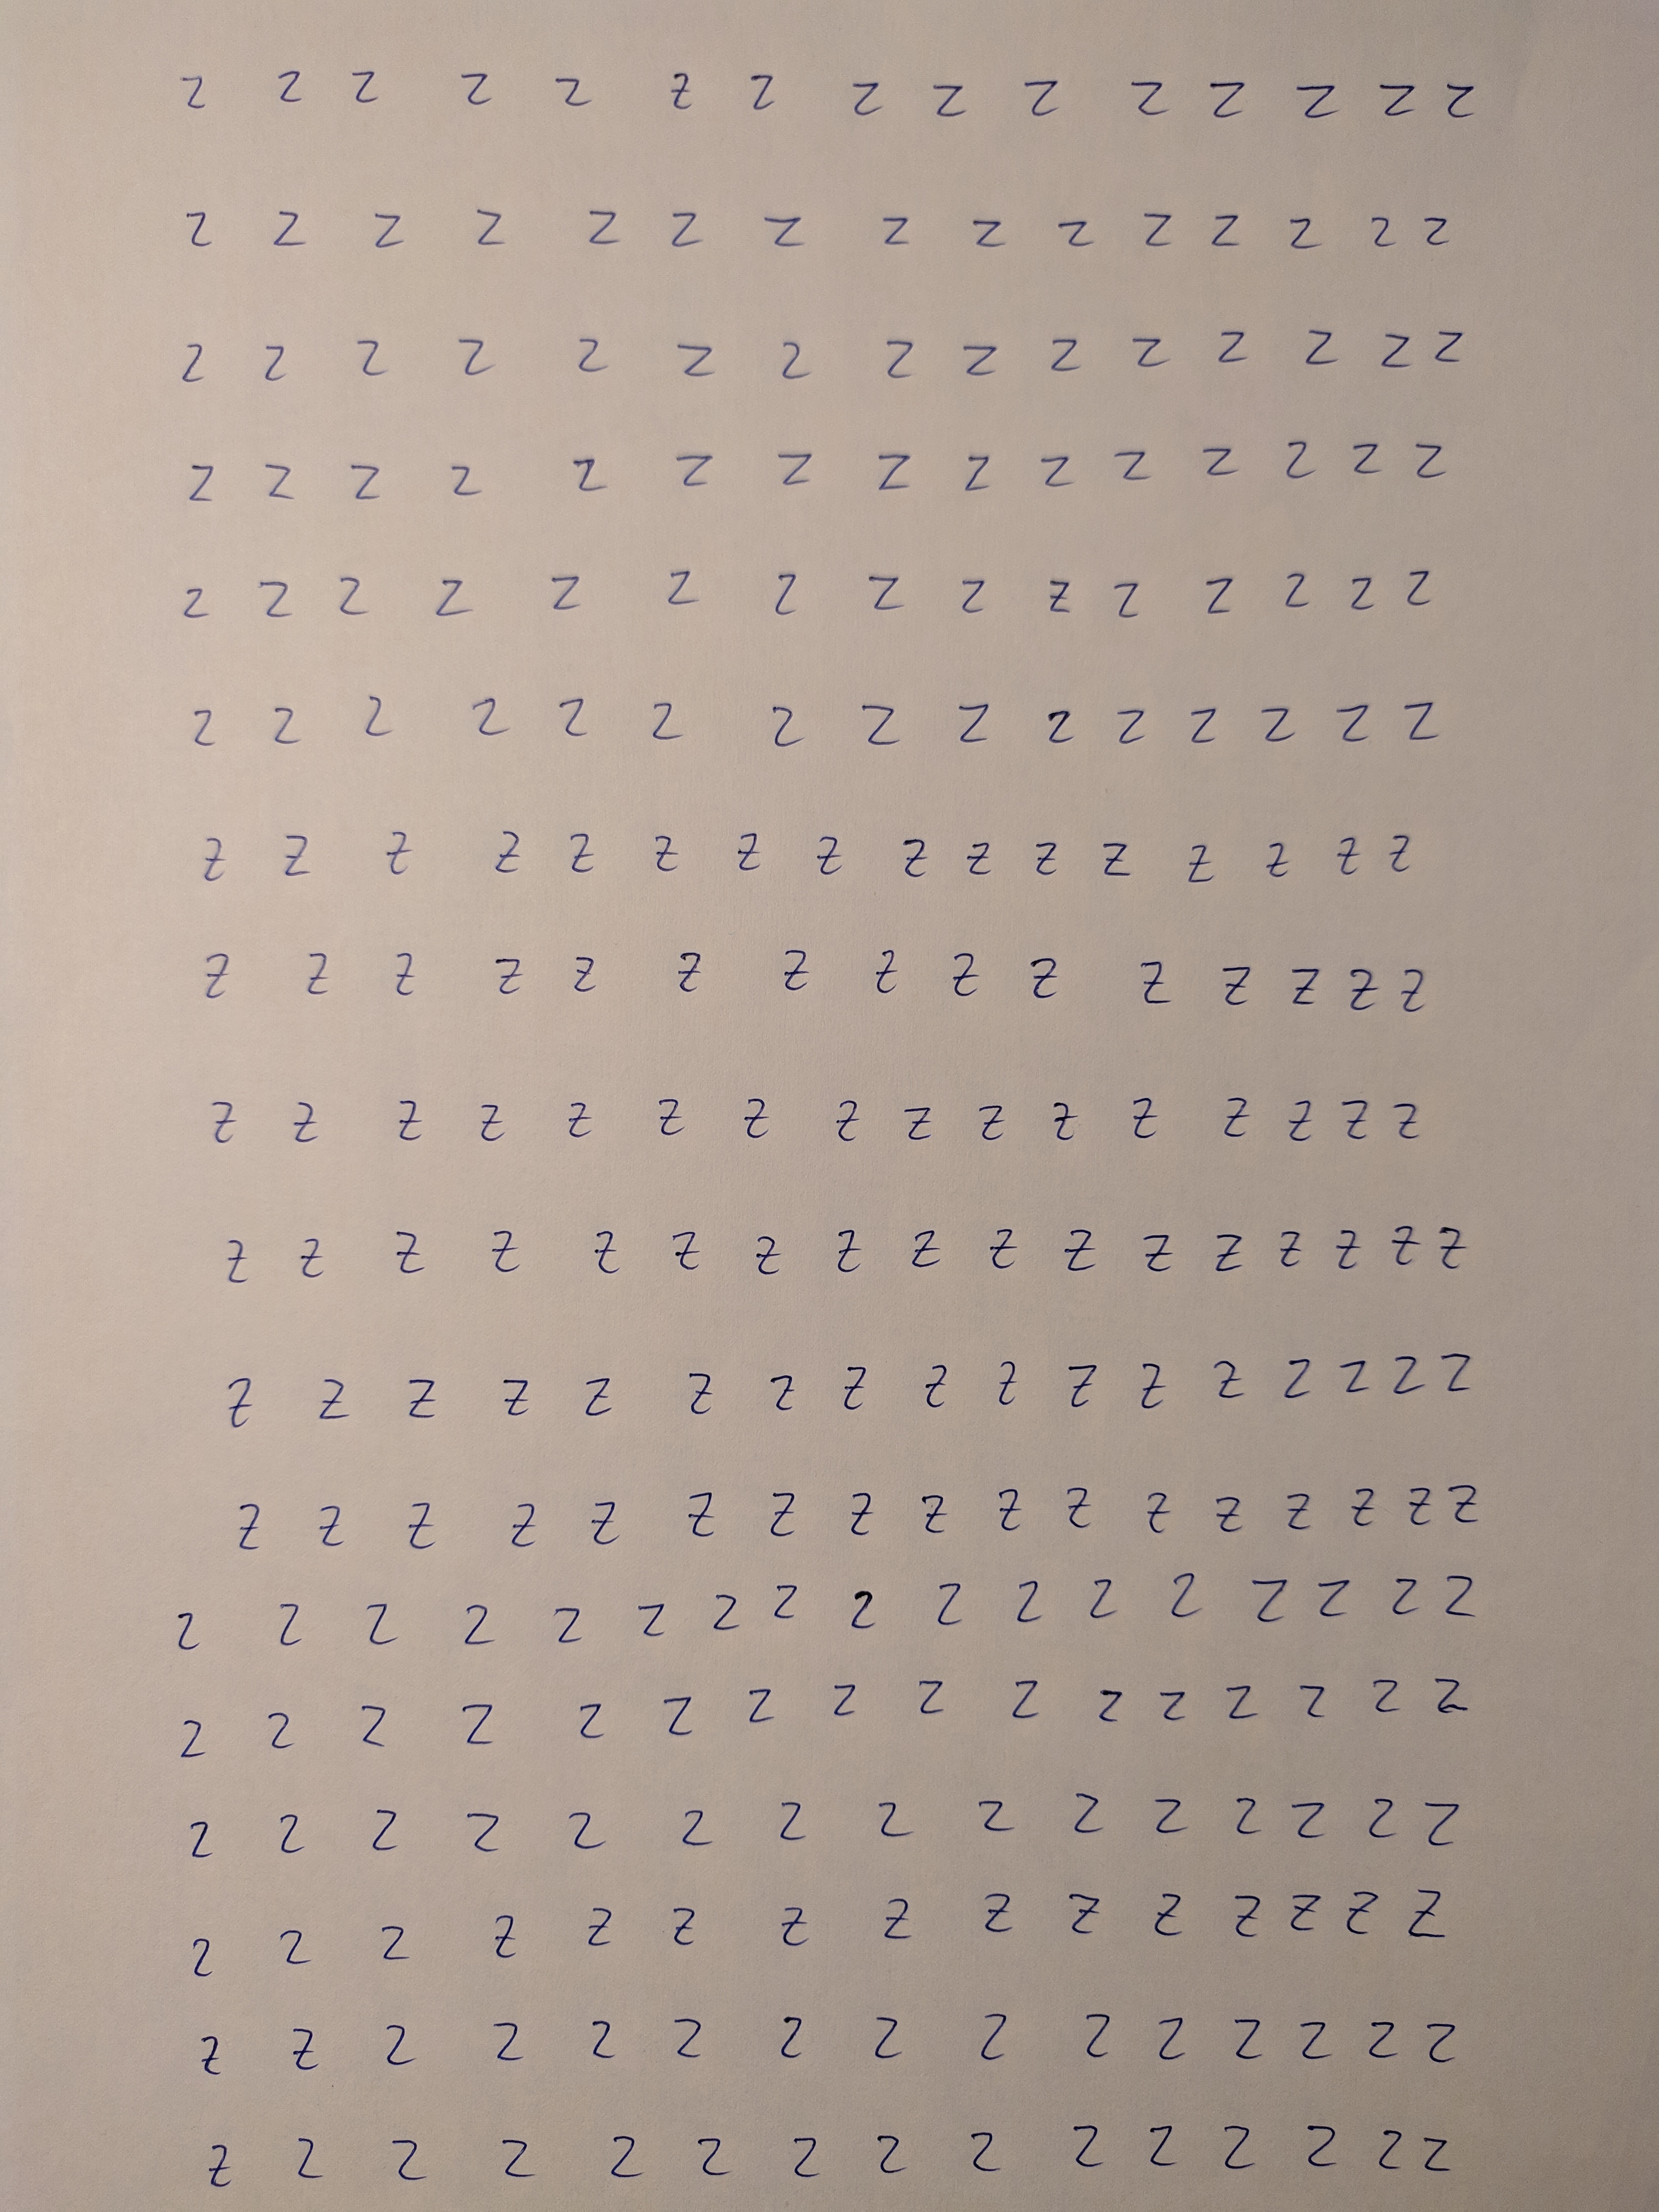 z z z z z z z z z z z z z z z
z z z z z z z z z z z z z z z
z z z z z z z z z z z z z z z
z z z z z z z z z z z z z z z
z z z z z z z z z z z z z z z
z z z z z z z z z z z z z z z
z z z z z z z z z z z z z z z z
z z z z z z z z z z z z z z z
z z z z z z z z z z z z z z z z
z z z z z z z z z z z z z z z z z
z z z z z z z z z z z z z z z z z
z z z z z z z z z z z z z z z z z
z z z z z z z z z z z z z z z z z
z z z z z z z z z z z z z z z z
z z z z z z z z z z z z z z z
z z z z z z z z z z z z z z z
z z z z z z z z z z z z z z z
z z z z z z z z z z z z z z z